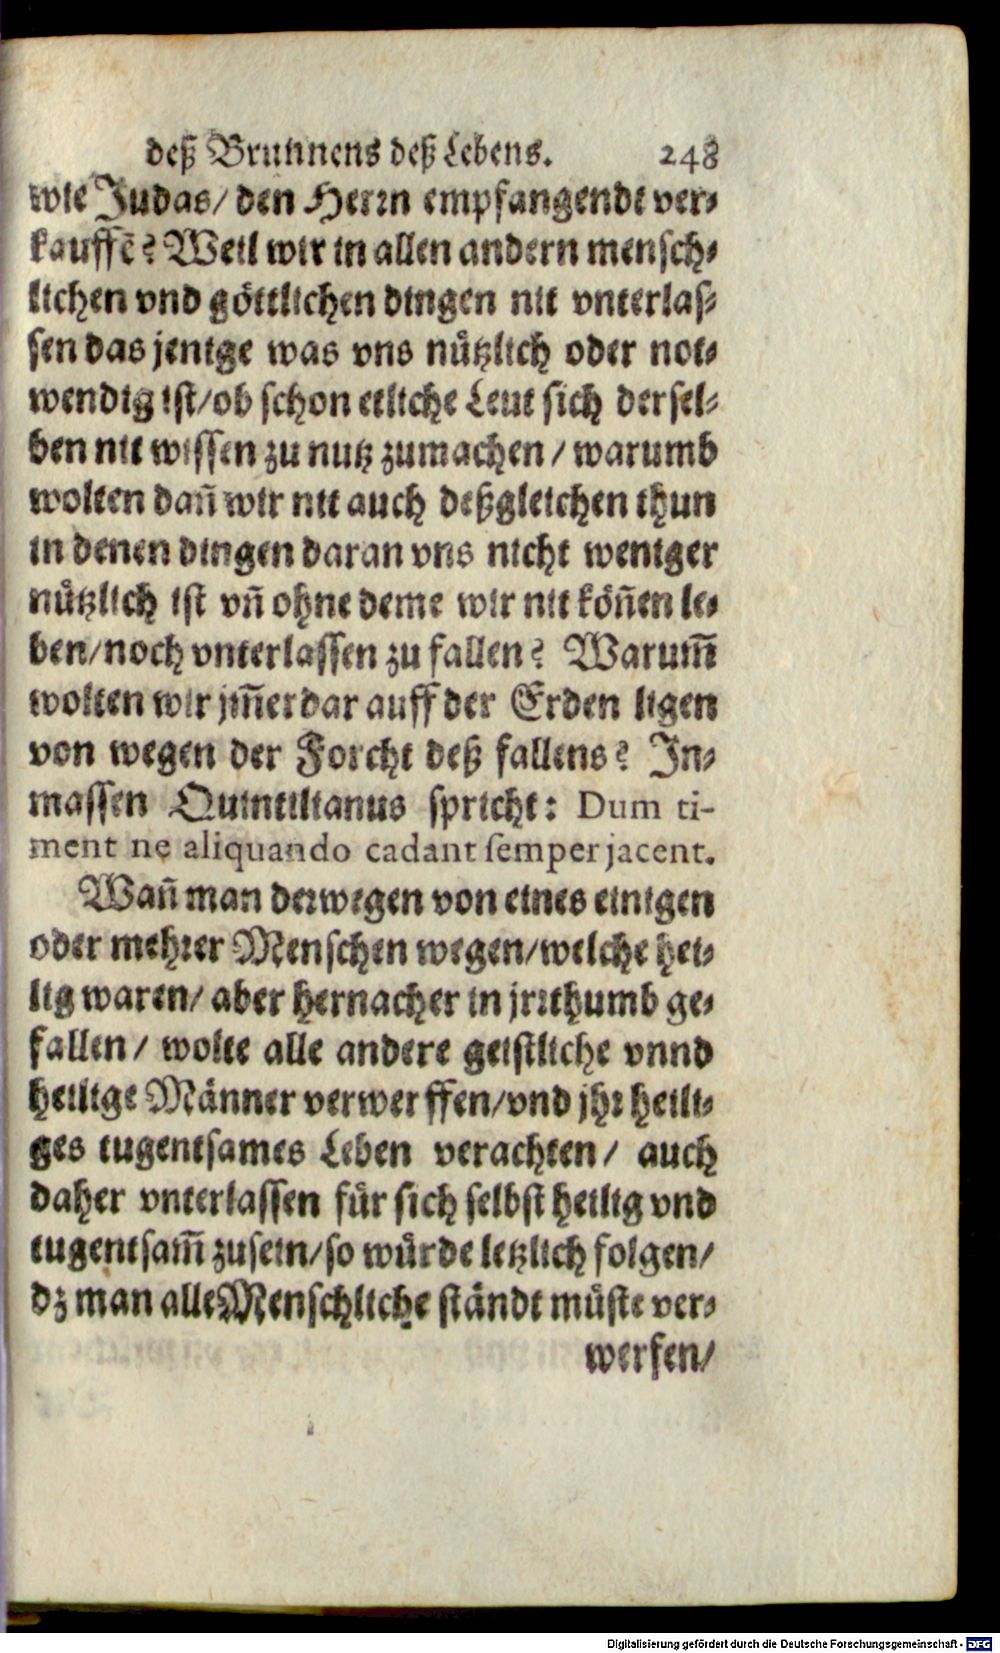 deß Brunnens deß Lebens. 248
wie Judas/ den Herrn empfangendt ver-
kauffē? Weil wir in allen andern mensch-
lichen vnd göttlichen dingen nit vnterlas-
sen das jenige was vns nützlich oder not-
wendig ist/ob schon etliche Leut sich dersel-
ben nit wissen zu nutz zumachen/ warumb
wolten dañ wir nit auch deßgleichen thun
in denen dingen daran vns nicht weniger
nützlich ist vñ ohne deme wir nit köñen le-
ben/noch vnterlassen zu fallen? Warum̄
wolten wir jm̄erdar auff der Erden ligen
von wegen der Forcht deß fallens? In-
massen Quintilianus spricht: Dum ti-
ment ne aliquando cadant semper jacent.
Wañ man derwegen von eines einigen
oder mehrer Menschen wegen/welche hei-
lig waren/ aber hernacher in jrrthumb ge-
fallen/ wolte alle andere geistliche vnnd
heilige Männer verwerffen/vnd jhr heili-
ges tugentsames Leben verachten/ auch
daher vnterlassen für sich selbst heilig vnd
tugentsam̄ zusein/so würde letzlich folgen/
dz man alle Menschliche ständt müste ver-
werfen/
Digitalisierung gefördert durch die Deutsche Forschungsgemeinschaft - DFG